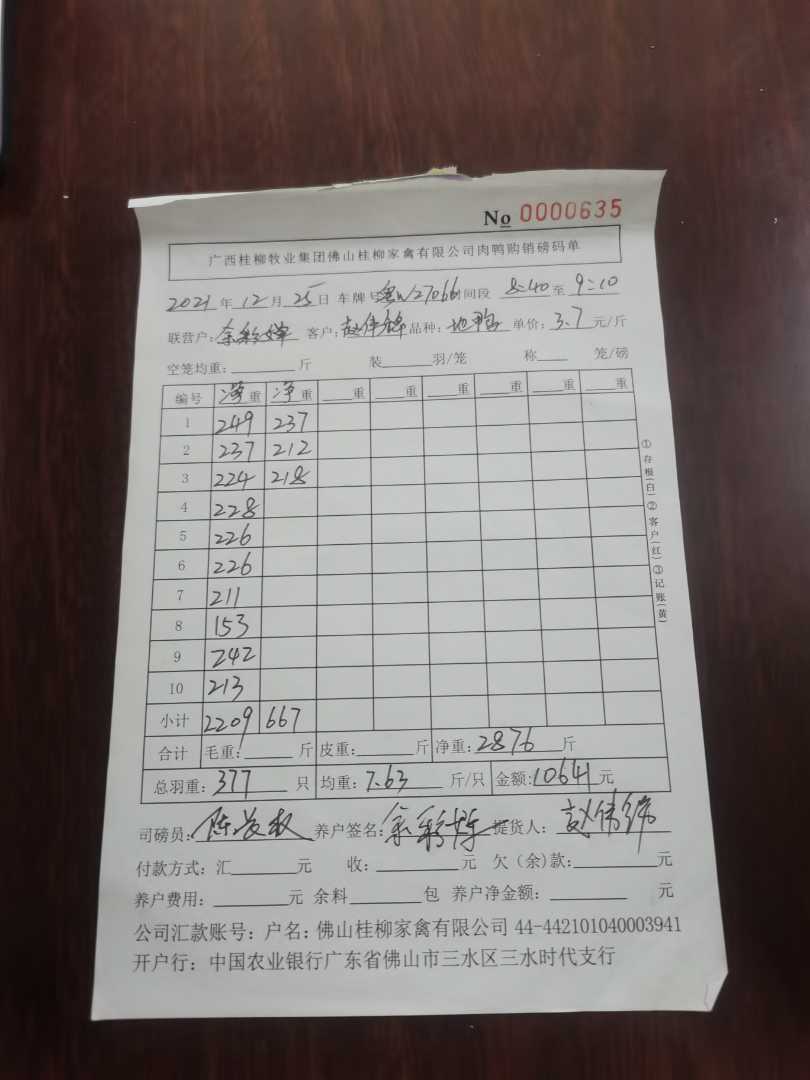 No 0000635
广西桂柳牧业集团佛山桂柳家禽有限公司肉鸭购销磅码单
2021年12月25日 车牌号 27066 时间段 8:40至9:10
联营户:余彩婵 客户:赵伟锦 品种: 单价:3.7元/斤
空笼均重:____斤 装____羽/笼 称____笼/磅
编号 净重 净重 ____重 ____重 ____重 ____重 ____重 ____重
1 249 237
2 237 212
3 224 218
4 228
5 226
6 226
7 211
8 153
9 242
10 213
小计 2209 667
合计 毛重:____斤 皮重:____斤 净重:2876斤
总羽重:377只 均重:7.63斤/只 金额:10641元
司磅员: 养户签名: 提货人:
付款方式:汇____元 收:____元 欠(余)款:____元
养户费用:____元 余料____包 养户净金额:____元
公司汇款账号:户名:佛山桂柳家禽有限公司 44-442101040003941
开户行:中国农业银行广东省佛山市三水区三水时代支行
①存根(白)②客户(红)③记账(黄)